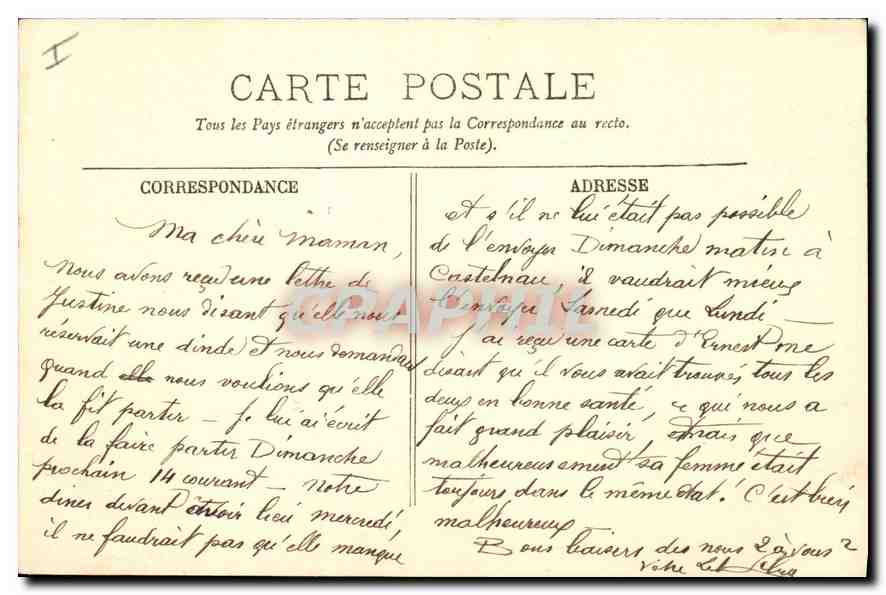 I
CARTE POSTALE
Tous les Pays étrangers n'acceptent pas la Correspondance au recto.
(Se renseigner à la Poste).
CORRESPONDANCE
Ma chère Maman,
Nous avons reçu une lettre de
Justine nous disant qu'elle nous
réservait une dinde et nous demandant
quand elle nous voulions qu'elle
la fit partir – Je lui ai écrit
de la faire partir Dimanche
prochain 14 courant – Notre
diner devant avoir lieu mercredi,
il ne faudrait pas qu'elle manque
ADRESSE
et s'il ne lui était pas possible
de l'envoyer Dimanche matin à
Castelnau, il vaudrait mieux
l'envoyer Samedi que Lundi –
J'ai reçu une carte d'Ernest me
disant qu'il vous avait trouvés tous les
deux en bonne santé, ce qui nous a
fait grand plaisir, mais que
malheureusement sa femme était
toujours dans le même état! C'est bien
malheureux
Bons baisers des nous 2 à vous 2
Votre
CPAPHIL